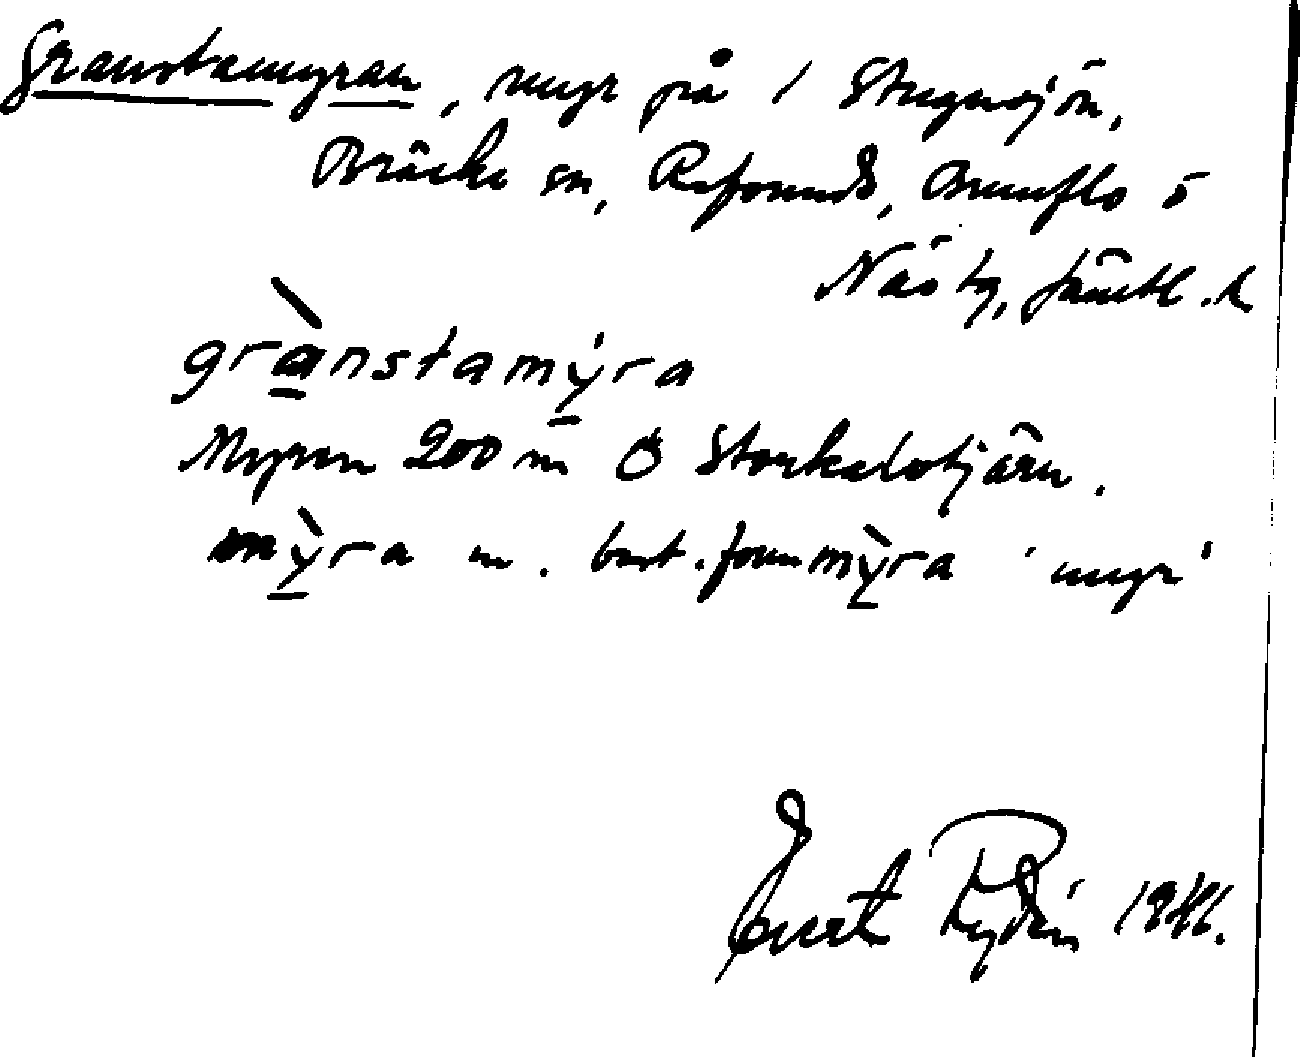 Granstamyran, myr på 1 Stugusjön,
Bräcke sn, Refsunds, Brunflo o
Näs tg, Jämtl. l.
grànstamýra
Myren 200 m Ö Storkalvtjärn.
mỳra m. best. form mỳra 'myr'
Evert Rydén 1941.